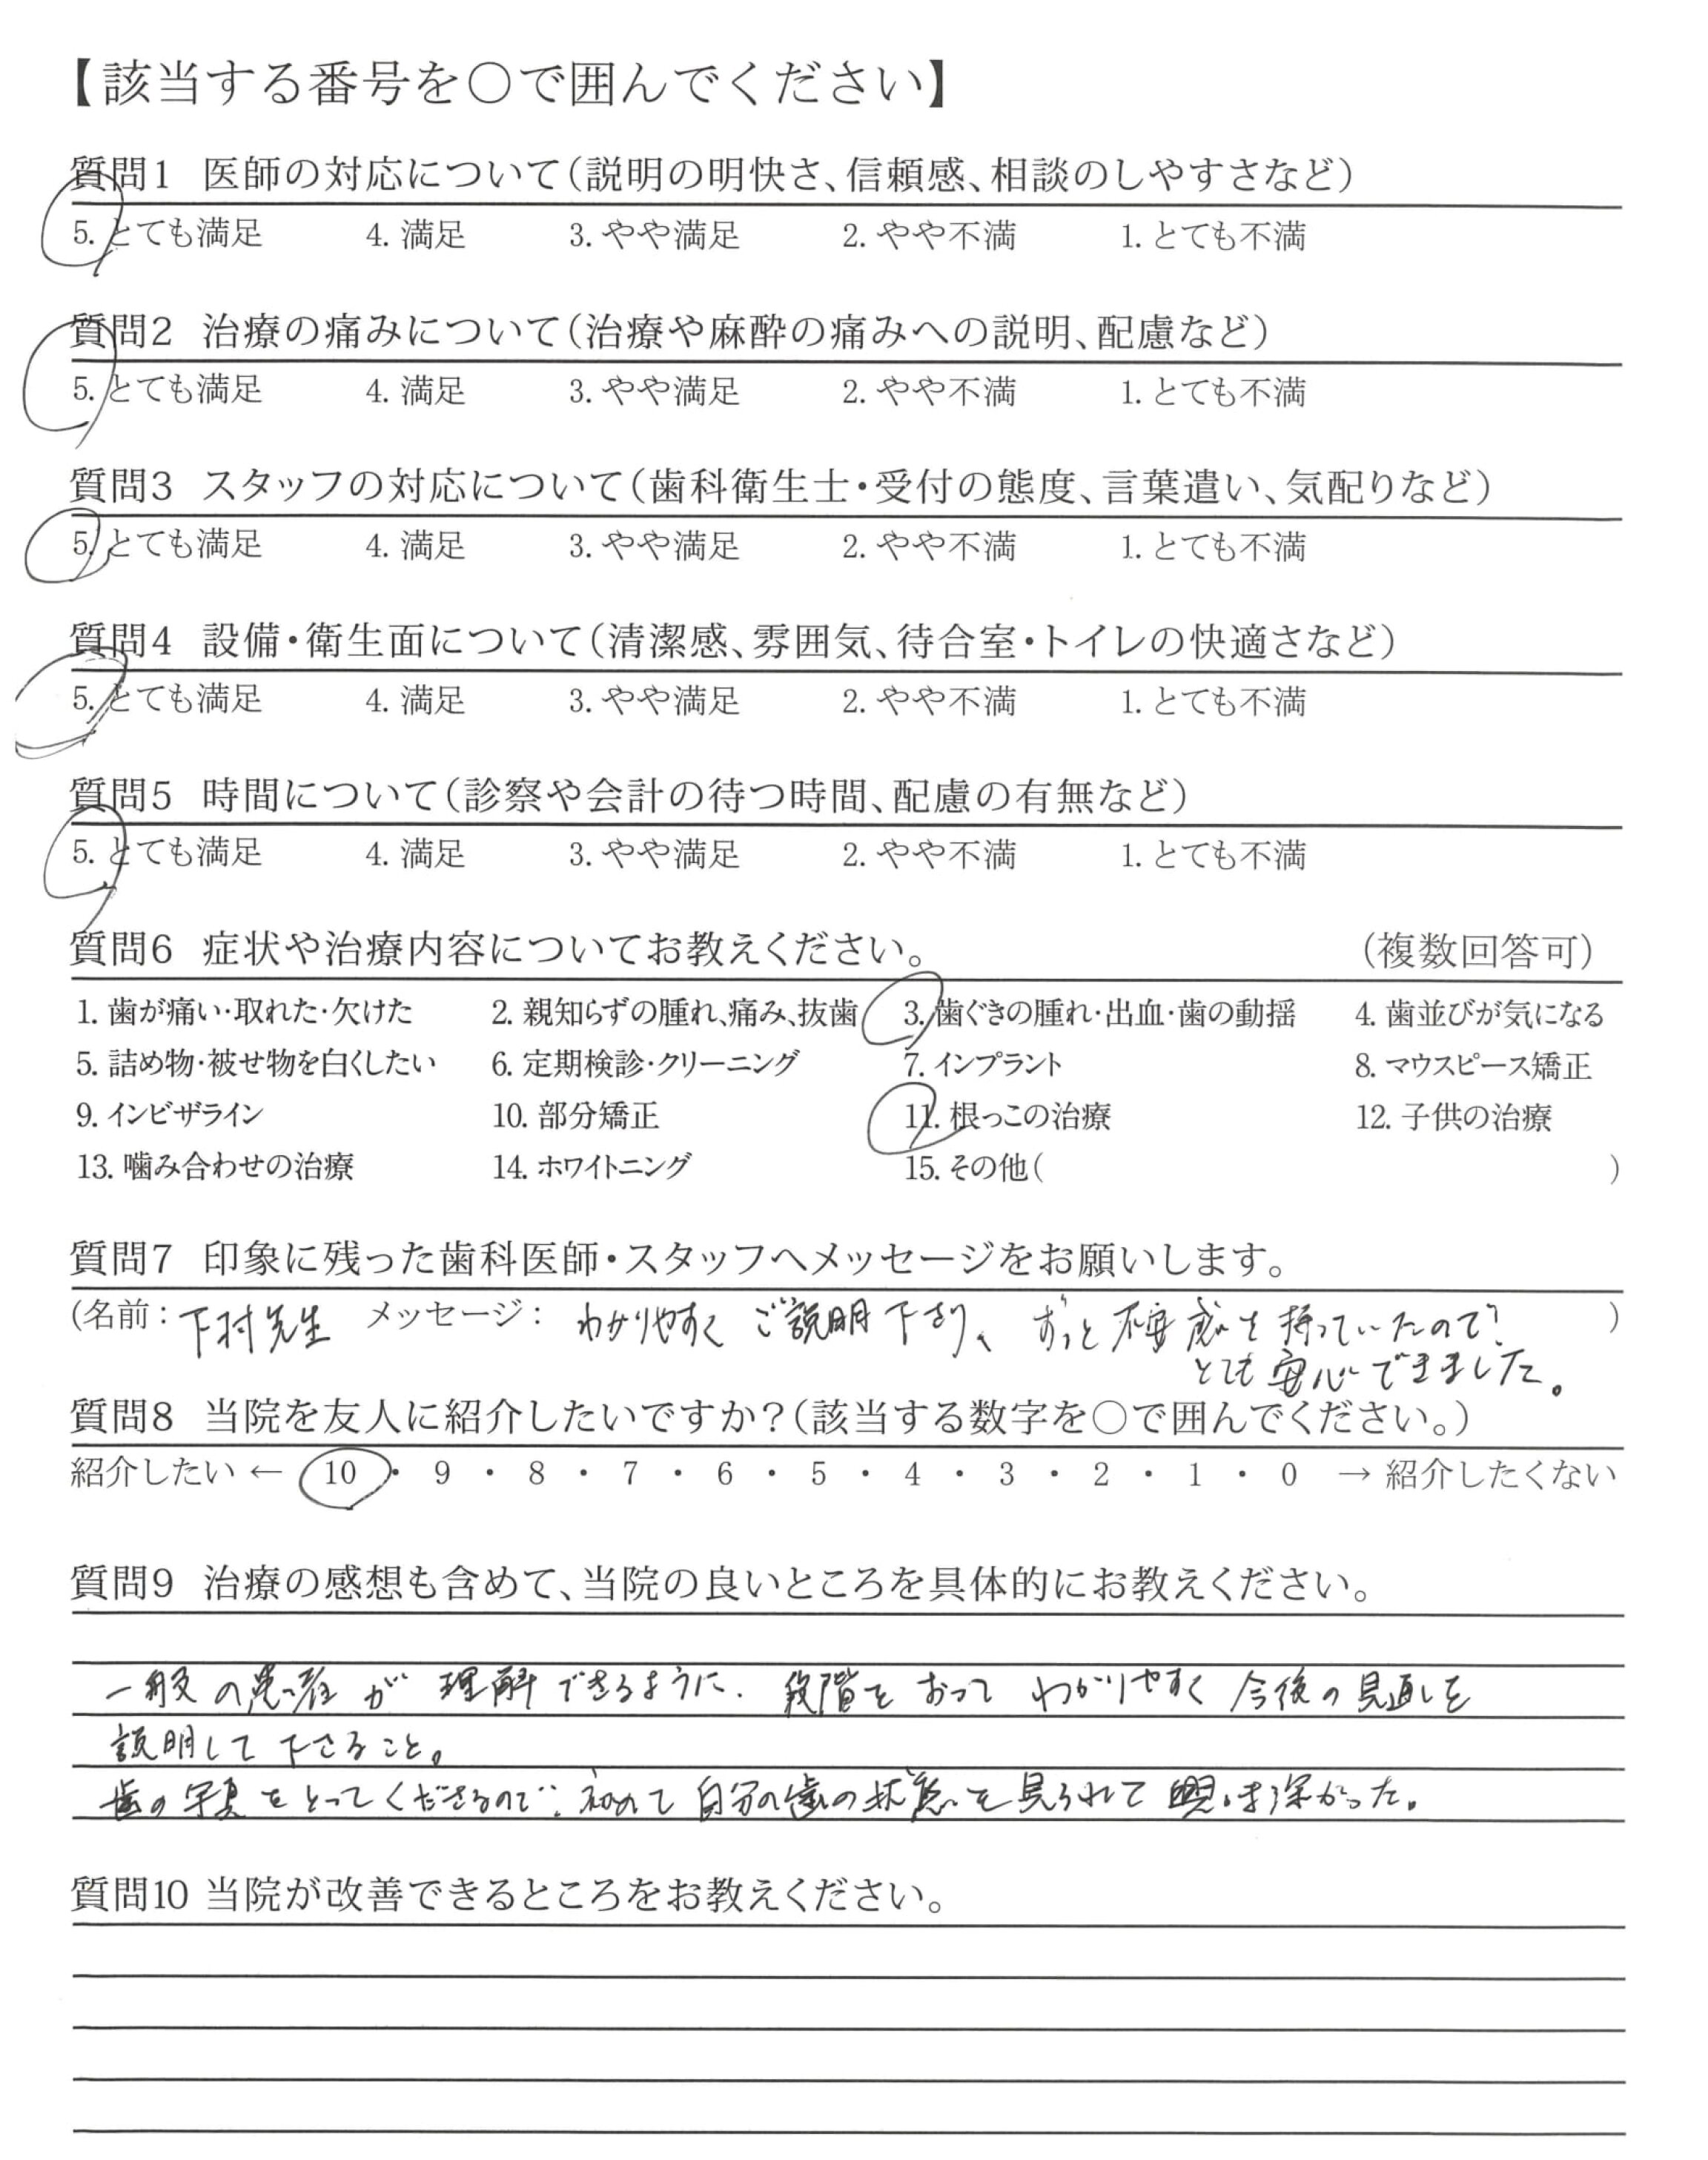 【該当する番号を〇で囲んでください】
質問1 医師の対応について(説明の明快さ、信頼感、相談のしやすさなど)
5. とても満足 4. 満足 3. やや満足 2. やや不満 1. とても不満
質問2 治療の痛みについて(治療や麻酔の痛みへの説明、配慮など)
5. とても満足 4. 満足 3. やや満足 2. やや不満 1. とても不満
質問3 スタッフの対応について(歯科衛生士・受付の態度、言葉遣い、気配りなど)
5. とても満足 4. 満足 3. やや満足 2. やや不満 1. とても不満
質問4 設備・衛生面について(清潔感、雰囲気、待合室・トイレの快適さなど)
5. とても満足 4. 満足 3. やや満足 2. やや不満 1. とても不満
質問5 時間について(診察や会計の待つ時間、配慮の有無など)
5. とても満足 4. 満足 3. やや満足 2. やや不満 1. とても不満
質問6 症状や治療内容についてお教えください。 (複数回答可)
1. 歯が痛い・取れた・欠けた 2. 親知らずの腫れ、痛み、抜歯 3. 歯ぐきの腫れ・出血・歯の動揺 4. 歯並びが気になる
5. 詰め物・被せ物を白くしたい 6. 定期検診・クリーニング 7. インプラント 8. マウスピース矯正
9. インビザライン 10. 部分矯正 11. 根っこの治療 12. 子供の治療
13. 噛み合わせの治療 14. ホワイトニング 15. その他( )
質問7 印象に残った歯科医師・スタッフへメッセージをお願いします。
(名前: 下村先生 メッセージ: わかりやすく ご説明下さり、ずっと不安感を持っていたので )
とても安心できました。
質問8 当院を友人に紹介したいですか?(該当する数字を〇で囲んでください。)
紹介したい ← 10 ・ 9 ・ 8 ・ 7 ・ 6 ・ 5 ・ 4 ・ 3 ・ 2 ・ 1 ・ 0 → 紹介したくない
質問9 治療の感想も含めて、当院の良いところを具体的にお教えください。
一般の患者が理解できるように、段階をおってわかりやすく今後の見通しを
説明して下さること。
歯の写真をとってくださるので、初めて自分の歯の状態を見られて興味深かった。
質問10 当院が改善できるところをお教えください。